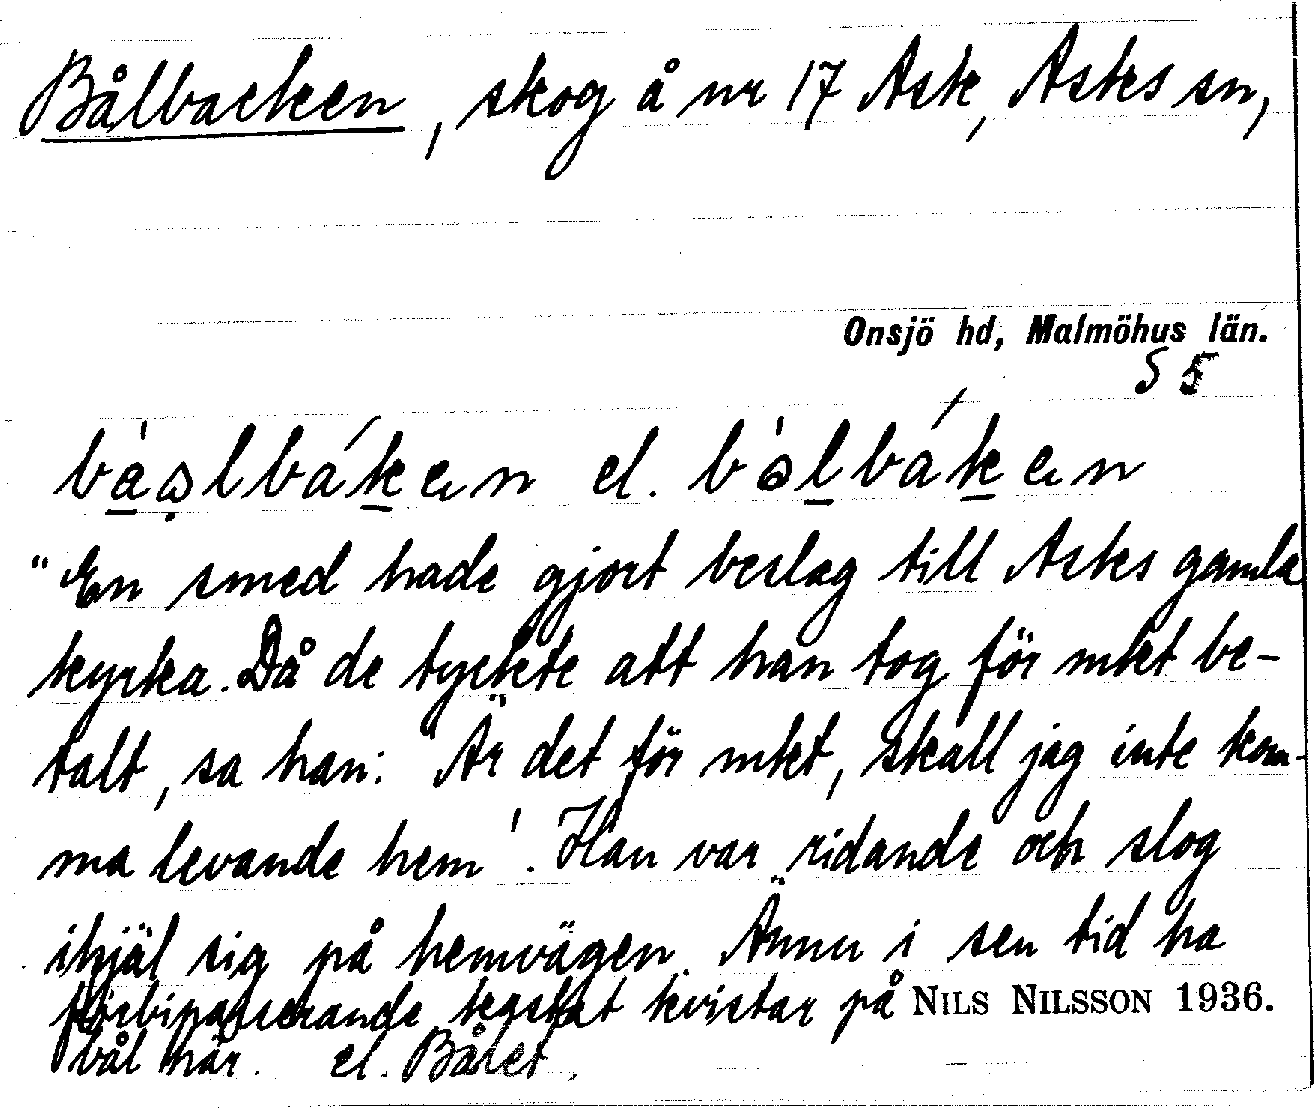 Bålbacken, skog å nr 17 Ask, Asks sn,
Onsjö hd, Malmöhus län.
S 5
el.
"En smed hade gjort beslag till Asks gamla
kyrka. Då de tyckte att han tog för mkt be-
talt, sa han: "Är det för mkt, skall jag inte kom-
ma levande hem'. Han var ridande och slog
ihjäl sig på hemvägen. Ännu i sen tid ha
förbipasserande kastat kvistar på NILS NILSSON 1936.
bål här. el. Bålet.